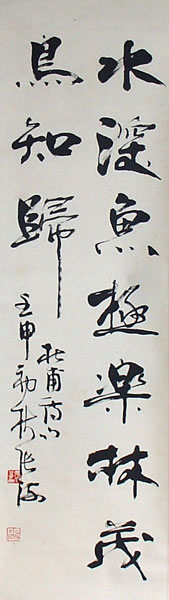 水深魚極樂林茂
鳥知歸
杜甫詩句
壬申